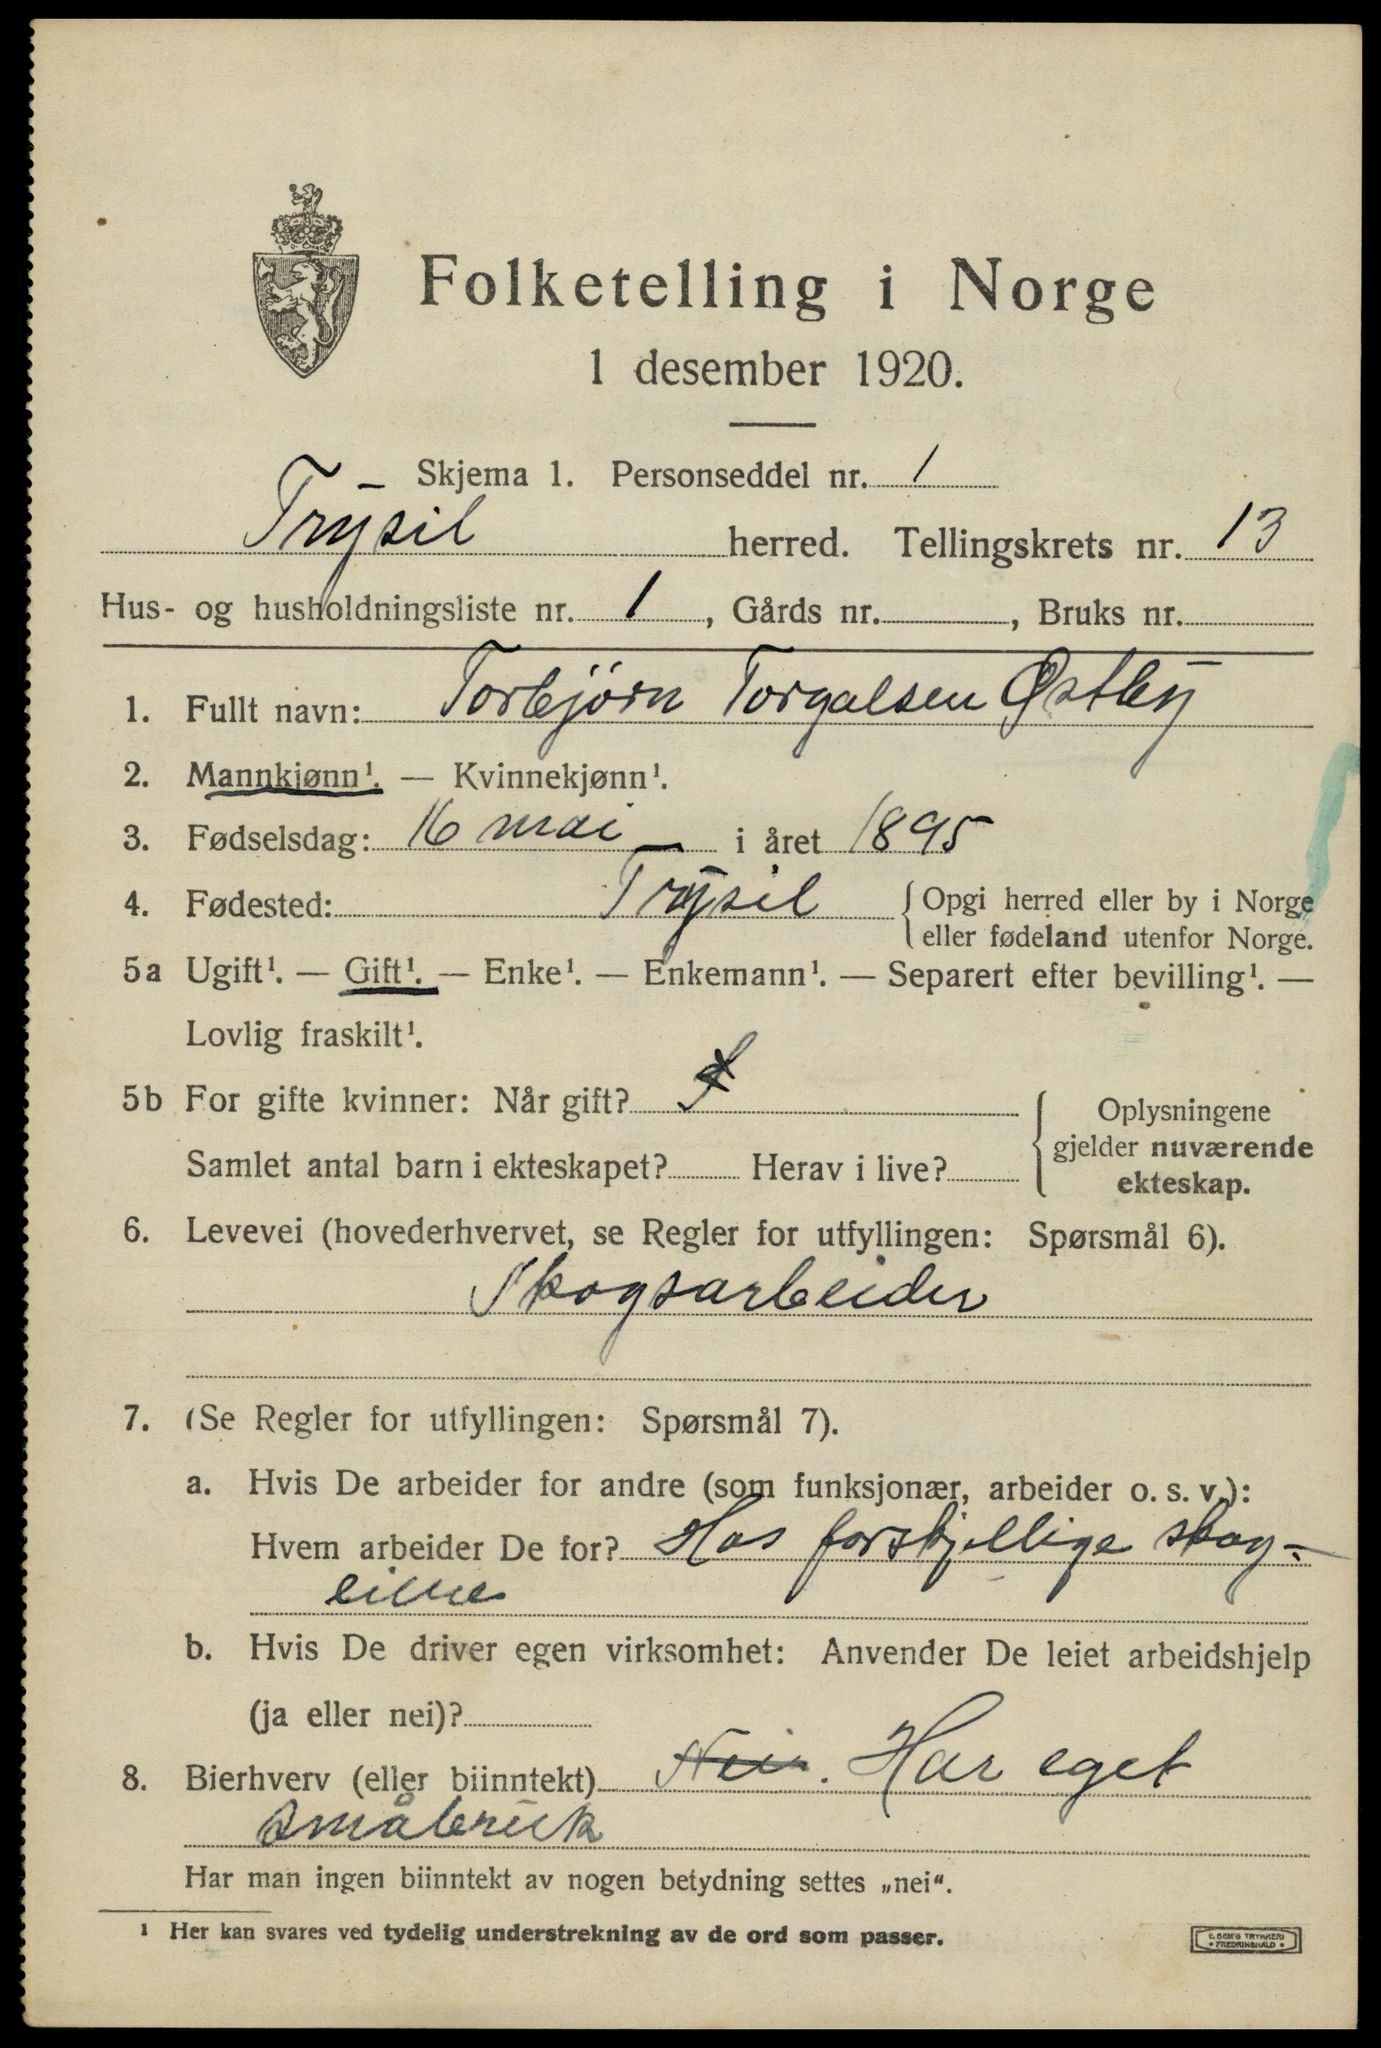 Folketelling i Norge
1 desember 1920.
Skjema 1. Personseddel nr. 1
Trysil herred. Tellingskrets nr. 13
Hus- og husholdningsliste nr. 1, Gårds nr. , Bruks nr.
1. Fullt navn: Torbjørn Torgalsen Østby
2. Mannkjønn¹. — Kvinnekjønn¹.
3. Fødselsdag: 16 mai i året 1895
4. Fødested: Trysil { Opgi herred eller by i Norge
eller fødeland utenfor Norge.
5a Ugift¹. — Gift¹. — Enke¹. — Enkemann¹. — Separert efter bevilling¹. —
Lovlig fraskilt¹.
5b For gifte kvinner: Når gift?
Samlet antal barn i ekteskapet? Herav i live?
Oplysningene
gjelder nuværende
ekteskap.
6. Levevei (hovederhvervet, se Regler for utfyllingen: Spørsmål 6).
Skogsarbeider
7. (Se Regler for utfyllingen: Spørsmål 7).
a. Hvis De arbeider for andre (som funksjonær, arbeider o. s. v.):
Hvem arbeider De for? Hos forskjellige skog-
eiere
b. Hvis De driver egen virksomhet: Anvender De leiet arbeidshjelp
(ja eller nei)?
8. Bierhverv (eller biinntekt) Nei. Har eget
småbruk
Har man ingen biinntekt av nogen betydning settes „nei“.
¹ Her kan svares ved tydelig understrekning av de ord som passer.
E. SEM'S TRYKKERI
• FREDRIKSHALD •